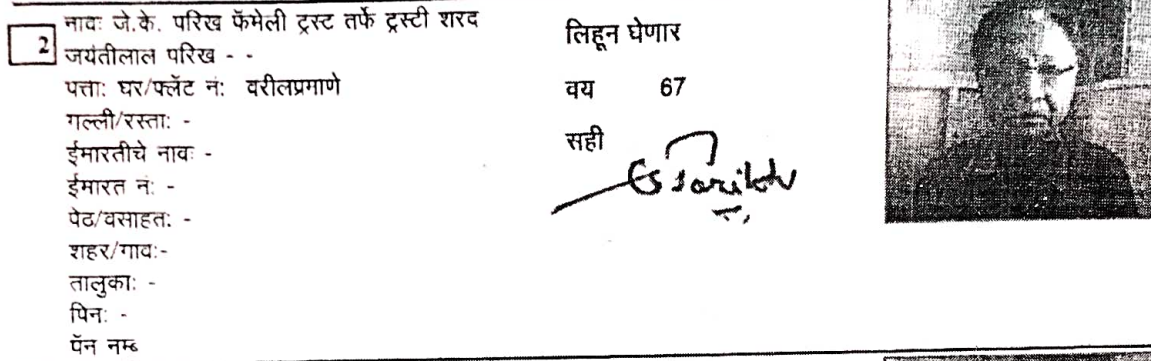 2
नावः जे.के. परिख फॅमेली ट्रस्ट तर्फे ट्रस्टी शरद
जयंतीलाल परिख - -
पत्ताः घर/फ्लॅट नंः वरीलप्रमाणे
गल्ली/रस्ताः -
ईमारतीचे नावः -
ईमारत नंः -
पेठ/वसाहतः -
शहर/गावः-
तालुकाः -
पिनः -
पॅन नम्ब
लिहून घेणार
वय 67
सही
Parikh